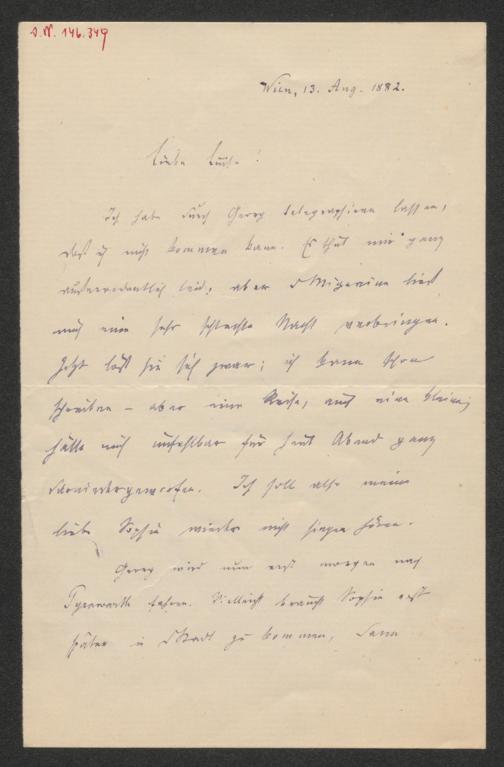 J.N. 146.349
Wien, 13. Aug. 1882.
Liebe !
Ich habe durch Georg telegraphieren lassen,
daß ich nicht kommen kann. Es thut mir ganz
außerordentlich leid, aber d Migraine ließ
mich eine sehr schlechte Nacht verbringen.
Jetzt löst sie sich zwar; ich kann schon
schreiben – aber eine Reise, auch eine kleine,
hätte mich unfehlbar für heut Abend ganz
darniedergeworfen. Ich soll also meine
liebe Sophie wieder nicht singen hören.
Georg wird nun erst morgen nach
fahren. Vielleicht braucht Sophie erst
später in d Stadt zu kommen, dann